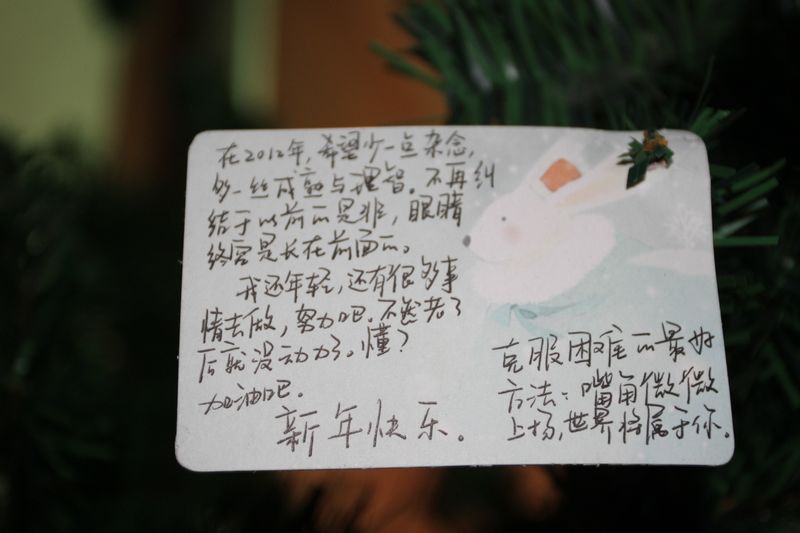 在2012年，希望少一点杂念，
多一丝成熟与理智。不再纠
结于以前的是非，眼睛
终究是长在前面的。
我还年轻，还有很多事
情去做，努力吧。不然老了
后就没动力了。懂？
加油吧。
新年快乐。
克服困难的最好
方法：嘴角微微
上扬，世界将属于你。